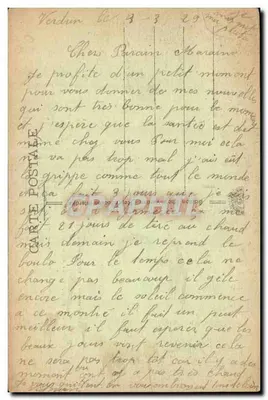 Verdun le 3-3 29
Chers Parain Maraine
je profite d'un petit moment
pour vous donner de mes nouvelles
qui sont tres bonne pour le moment
et j'espere que la santé et de
même chez vous Pour moi cela
ne va pas trop mal j'ais eut
la grippe comme tout le monde
fait 3 jour que je
21 jours de au chaud
mais demain je reprend le
boulo Pour le temps cela ne
change pas beaucoup il gèle
encore mais le soleil commence
a ce montré il fait un peut
meilleur il faut esperer que les
beaux jours vont revenir cela
ne sera pas trop tot car il y a des
moment ont et pas tres chaud
je vous quittant en vous embrassant
CARTE POSTALE
CPAPHIL